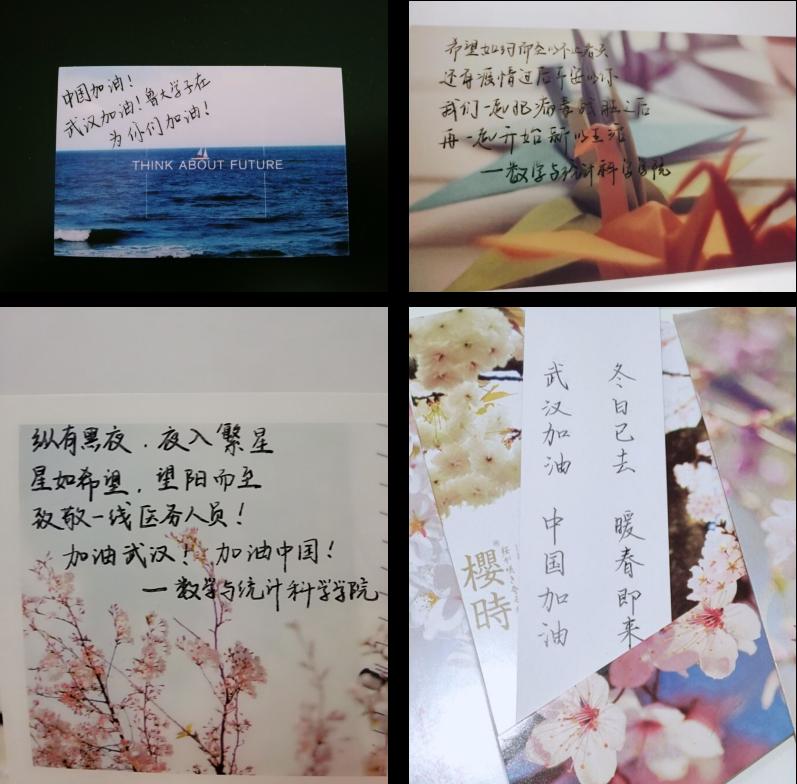 中国加油!
武汉加油!鲁大学子在
为你们加油!
THINK ABOUT FUTURE
希望如约而至的不止春天
还有疫情过后平安的你
我们一起把病毒战胜之后
再一起开始新的生活
—数学与统计科学学院
纵有黑夜,夜入繁星
星如希望,望阳而至
致敬一线医务人员!
加油武汉! 加油中国!
—数学与统计科学学院
冬日已去 暖春即来
武汉加油 中国加油
櫻時